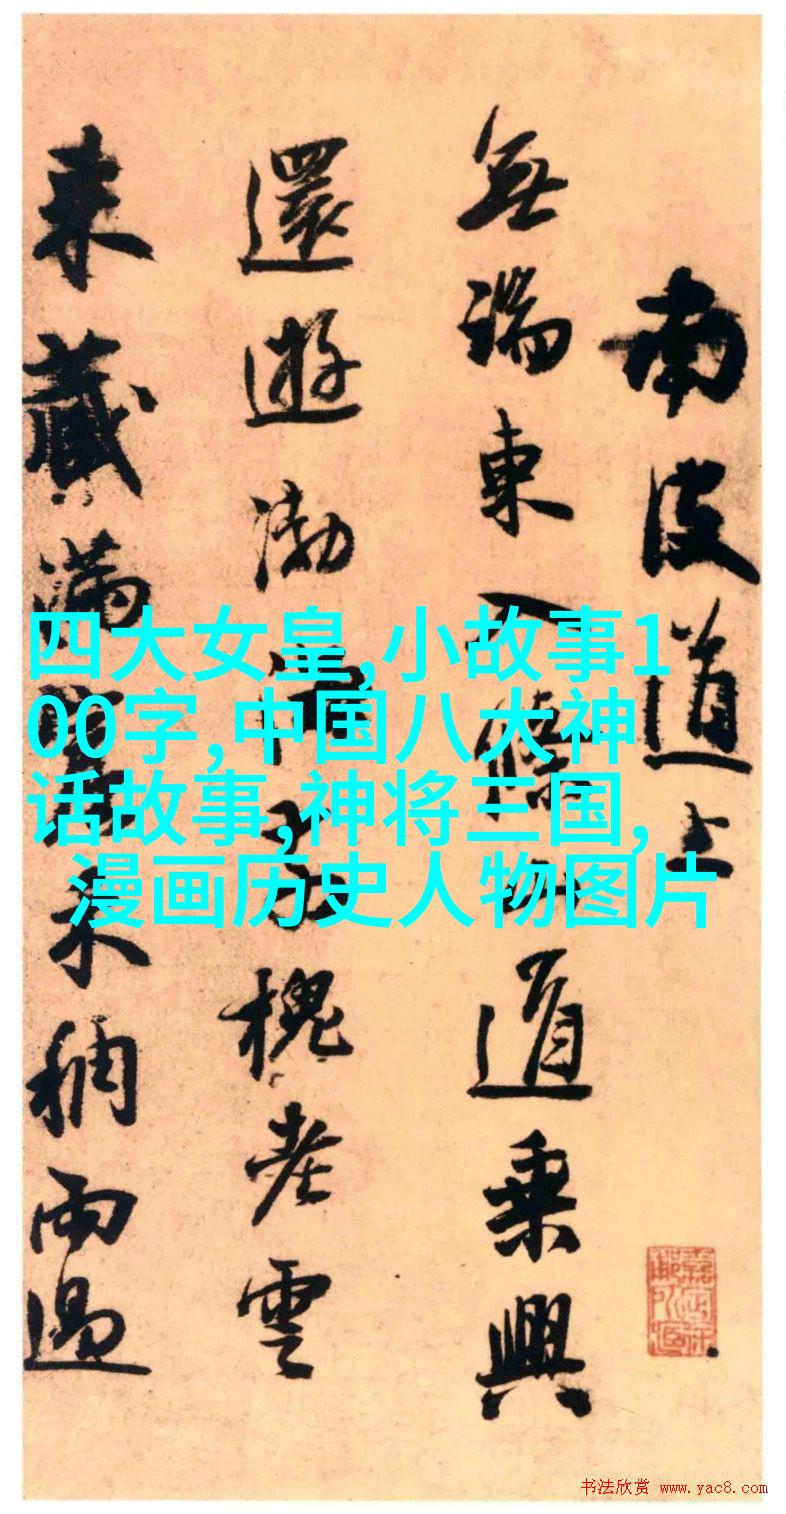 南皮道上
無端東條道乘興
還遊渤槐老雲
來藏滿禾稠雨過
四大女皇,小故事1
00字,中国八大神
话故事,神将三国,
漫画历史人物图片
书法欣赏 www.yac8.com